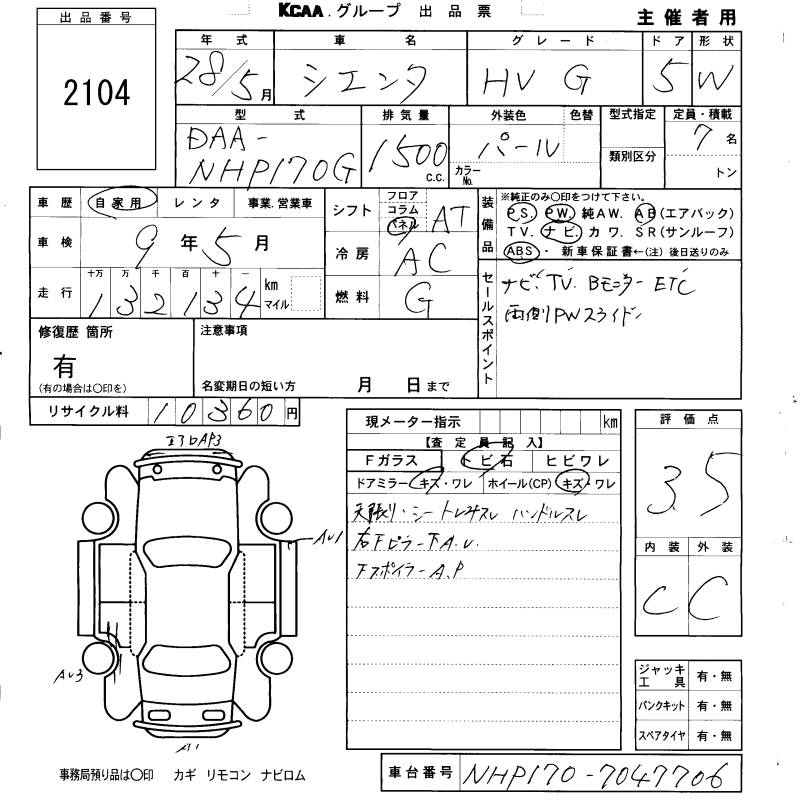 KCAA.グループ 出品票
主催者用
出品番号
2104
年式 車名 グレード ドア 形状
28/5月 シエンタ HV G 5 W
型式 排気量 外装色 色替 型式指定 定員・積載
DAA-
NHP170G
1500 c.c. パール カラーNo. 類別区分 7名
トン
車歴 自家用 レンタ 事業.営業車
車検 9年5月
走行 十万 万 千 百 十 一
132134 km
マイル
シフト フロア コラム パネル AT
冷房 AC
燃料 G
装備品 ※純正のみ○印をつけて下さい。
P.S. PW. 純AW. AB(エアバック)
TV. ナビ. カワ. SR(サンルーフ)
ABS・新車保証書←(注)後日送りのみ
セールスポイント
ナビ、TV. Bモニター ETC
両側PWスライド
修復歴 箇所 注意事項
有
(有の場合は○印を) 名変期日の短い方 月 日まで
リサイクル料 10360円
現メーター指示 km
【査定員記入】
Fガラス トビ石 ヒビワレ
ドアミラー キズ・ワレ ホイール(CP) キズ・ワレ
天張り・シート ハンドルスレ
右下ピラー下A.U.
下スポイラーA.P
評価点
3.5
内装 外装
C C
AP3
AU1
AU3
A1
ジャッキ工具 有・無
パンクキット 有・無
スペアタイヤ 有・無
事務局預り品は○印 カギ リモコン ナビロム
車台番号 NHP170-7047706